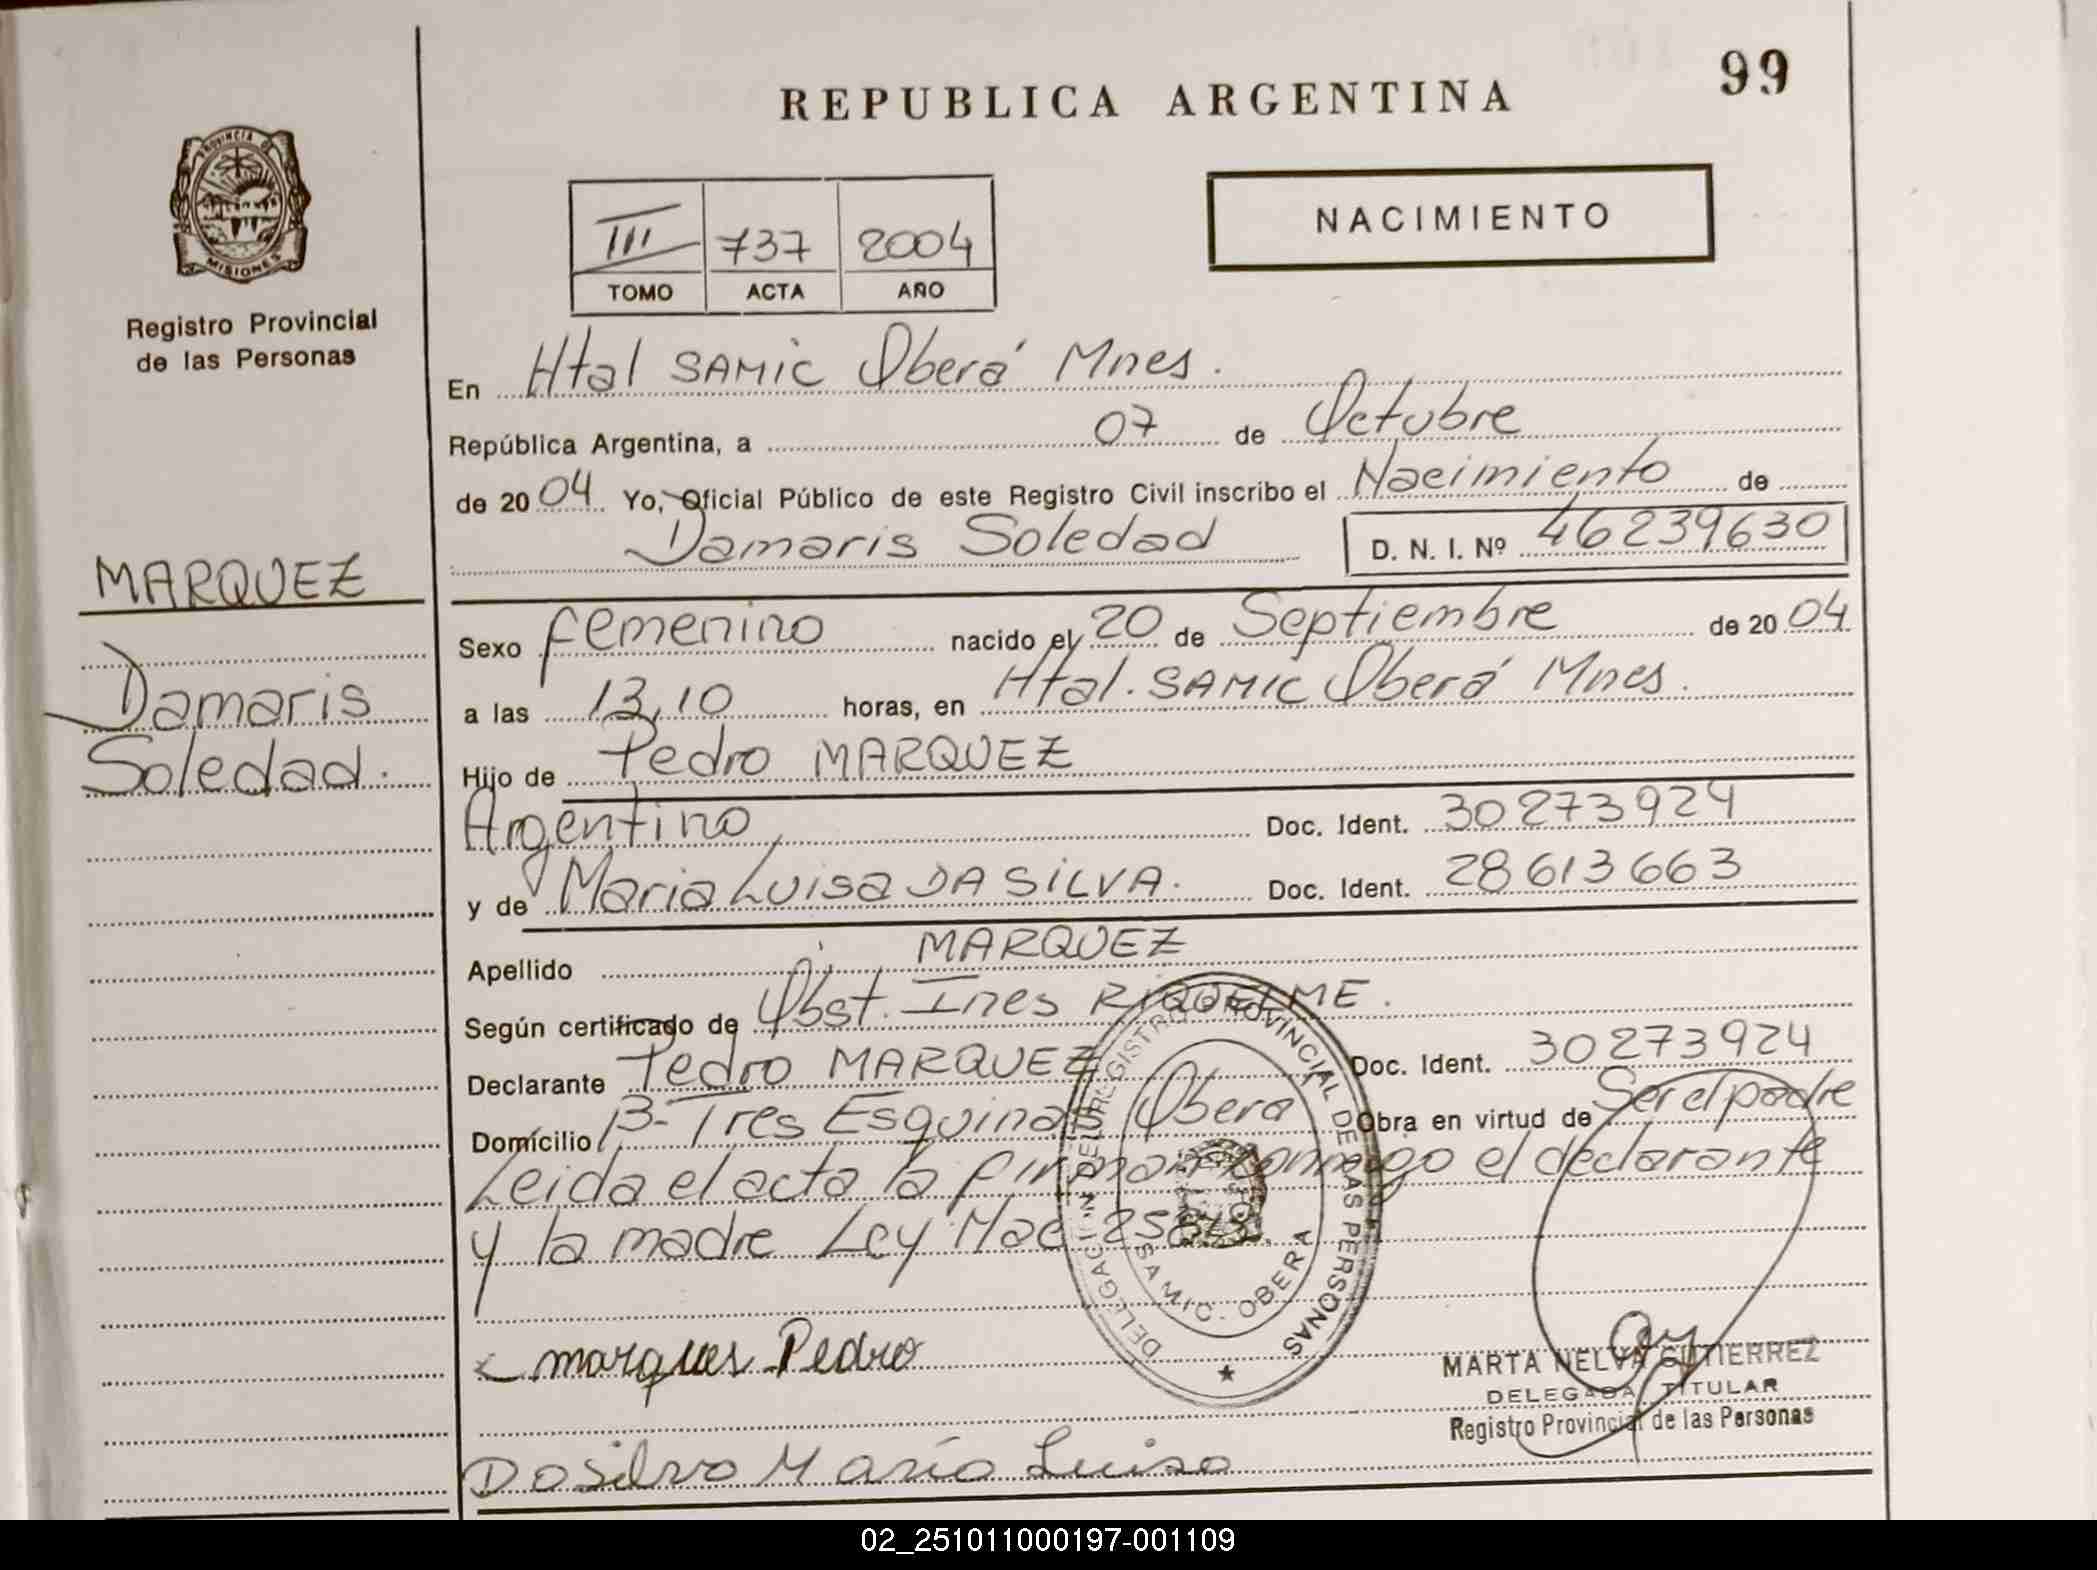 REPUBLICA ARGENTINA
99
PROVINCIA DE
MISIONES
Registro Provincial
de las Personas
III 737 2004
TOMO ACTA AÑO
NACIMIENTO
En Htal SAMIC Oberá Mnes.
República Argentina, a 07 de Octubre
de 2004 Yo, Oficial Público de este Registro Civil inscribo el Nacimiento de
Damaris Soledad D. N. I. Nº 46239630
MARQUEZ
Damaris
Soledad.
Sexo femenino nacido el 20 de Septiembre de 2004
a las 13,10 horas, en Htal. SAMIC Oberá Mnes.
Hijo de Pedro MARQUEZ
Argentino Doc. Ident. 30273924
y de Maria Luisa DA SILVA. Doc. Ident. 28613663
Apellido MARQUEZ
Según certificado de Obst. Ines RIQUELME.
Declarante Pedro MARQUEZ Doc. Ident. 30273924
Domicilio B- Tres Esquinas Obera Obra en virtud de Ser el padre
Leida el acta la firman conmigo el declarante
y la madre Ley Nac
REGISTRO PROVINCIAL DE LAS PERSONAS
SAMIC - OBERA
marques Pedro
MARTA NELVA GUTIERREZ
DELEGADA TITULAR
Registro Provincial de las Personas
Dasilva Maria Luisa
02_251011000197-001109